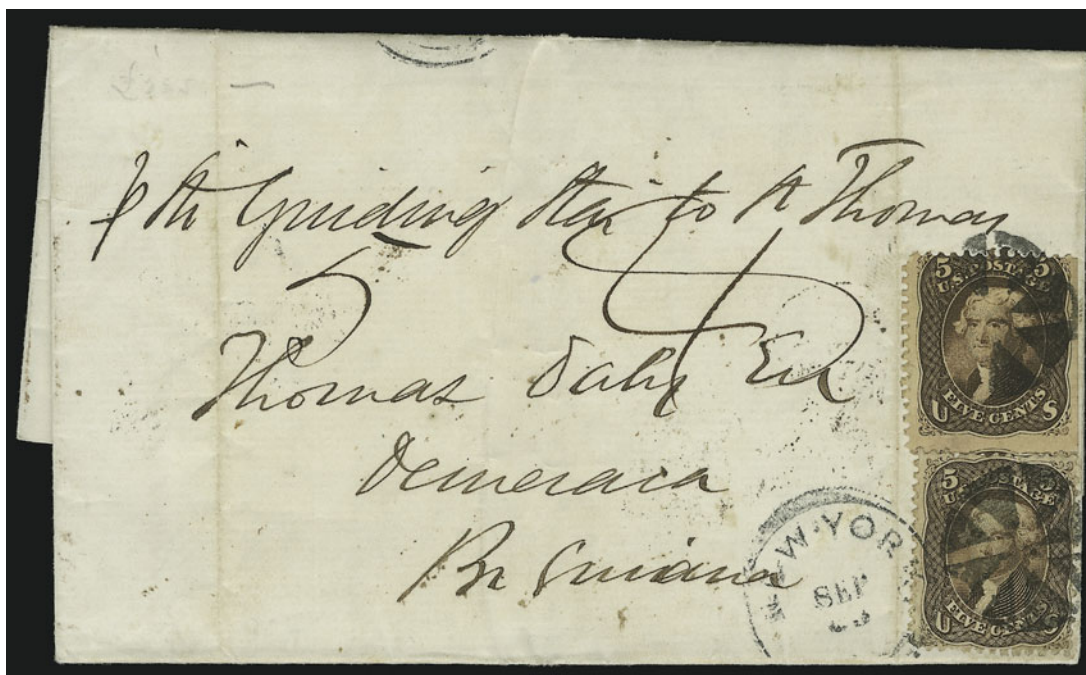 p str Guiding Star to St Thomas
Thomas Daly Esq
Demerara
Br Guiana
5 5
U.S. POSTAGE
U FIVE CENTS S
5 5
U.S. POSTAGE
U FIVE CENTS S
NEW-YOR
SEP